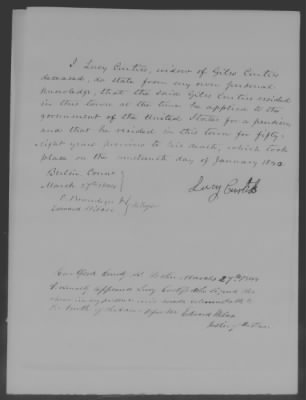 I Lucy Curtiss, widow of Giles Curtiss
deceased, do state from my own personal
knowledge, that the said Giles Curtiss resided
in this town at the time he applied to the
government of the United States for a pension
and that he resided in this town for fifty-
eight years previous to his death, which took
place on the nineteenth day of January 18
Berlin Conn
March 27th 1844
Lucy Curtiss
E. Brandegee
Edward Wilcox
Hartford County ss Berlin March 27th 1844
Personally appeared Lucy Curtiss who signed the
above and made
the truth of the before me Edward Wilcox
Justice of the Peace